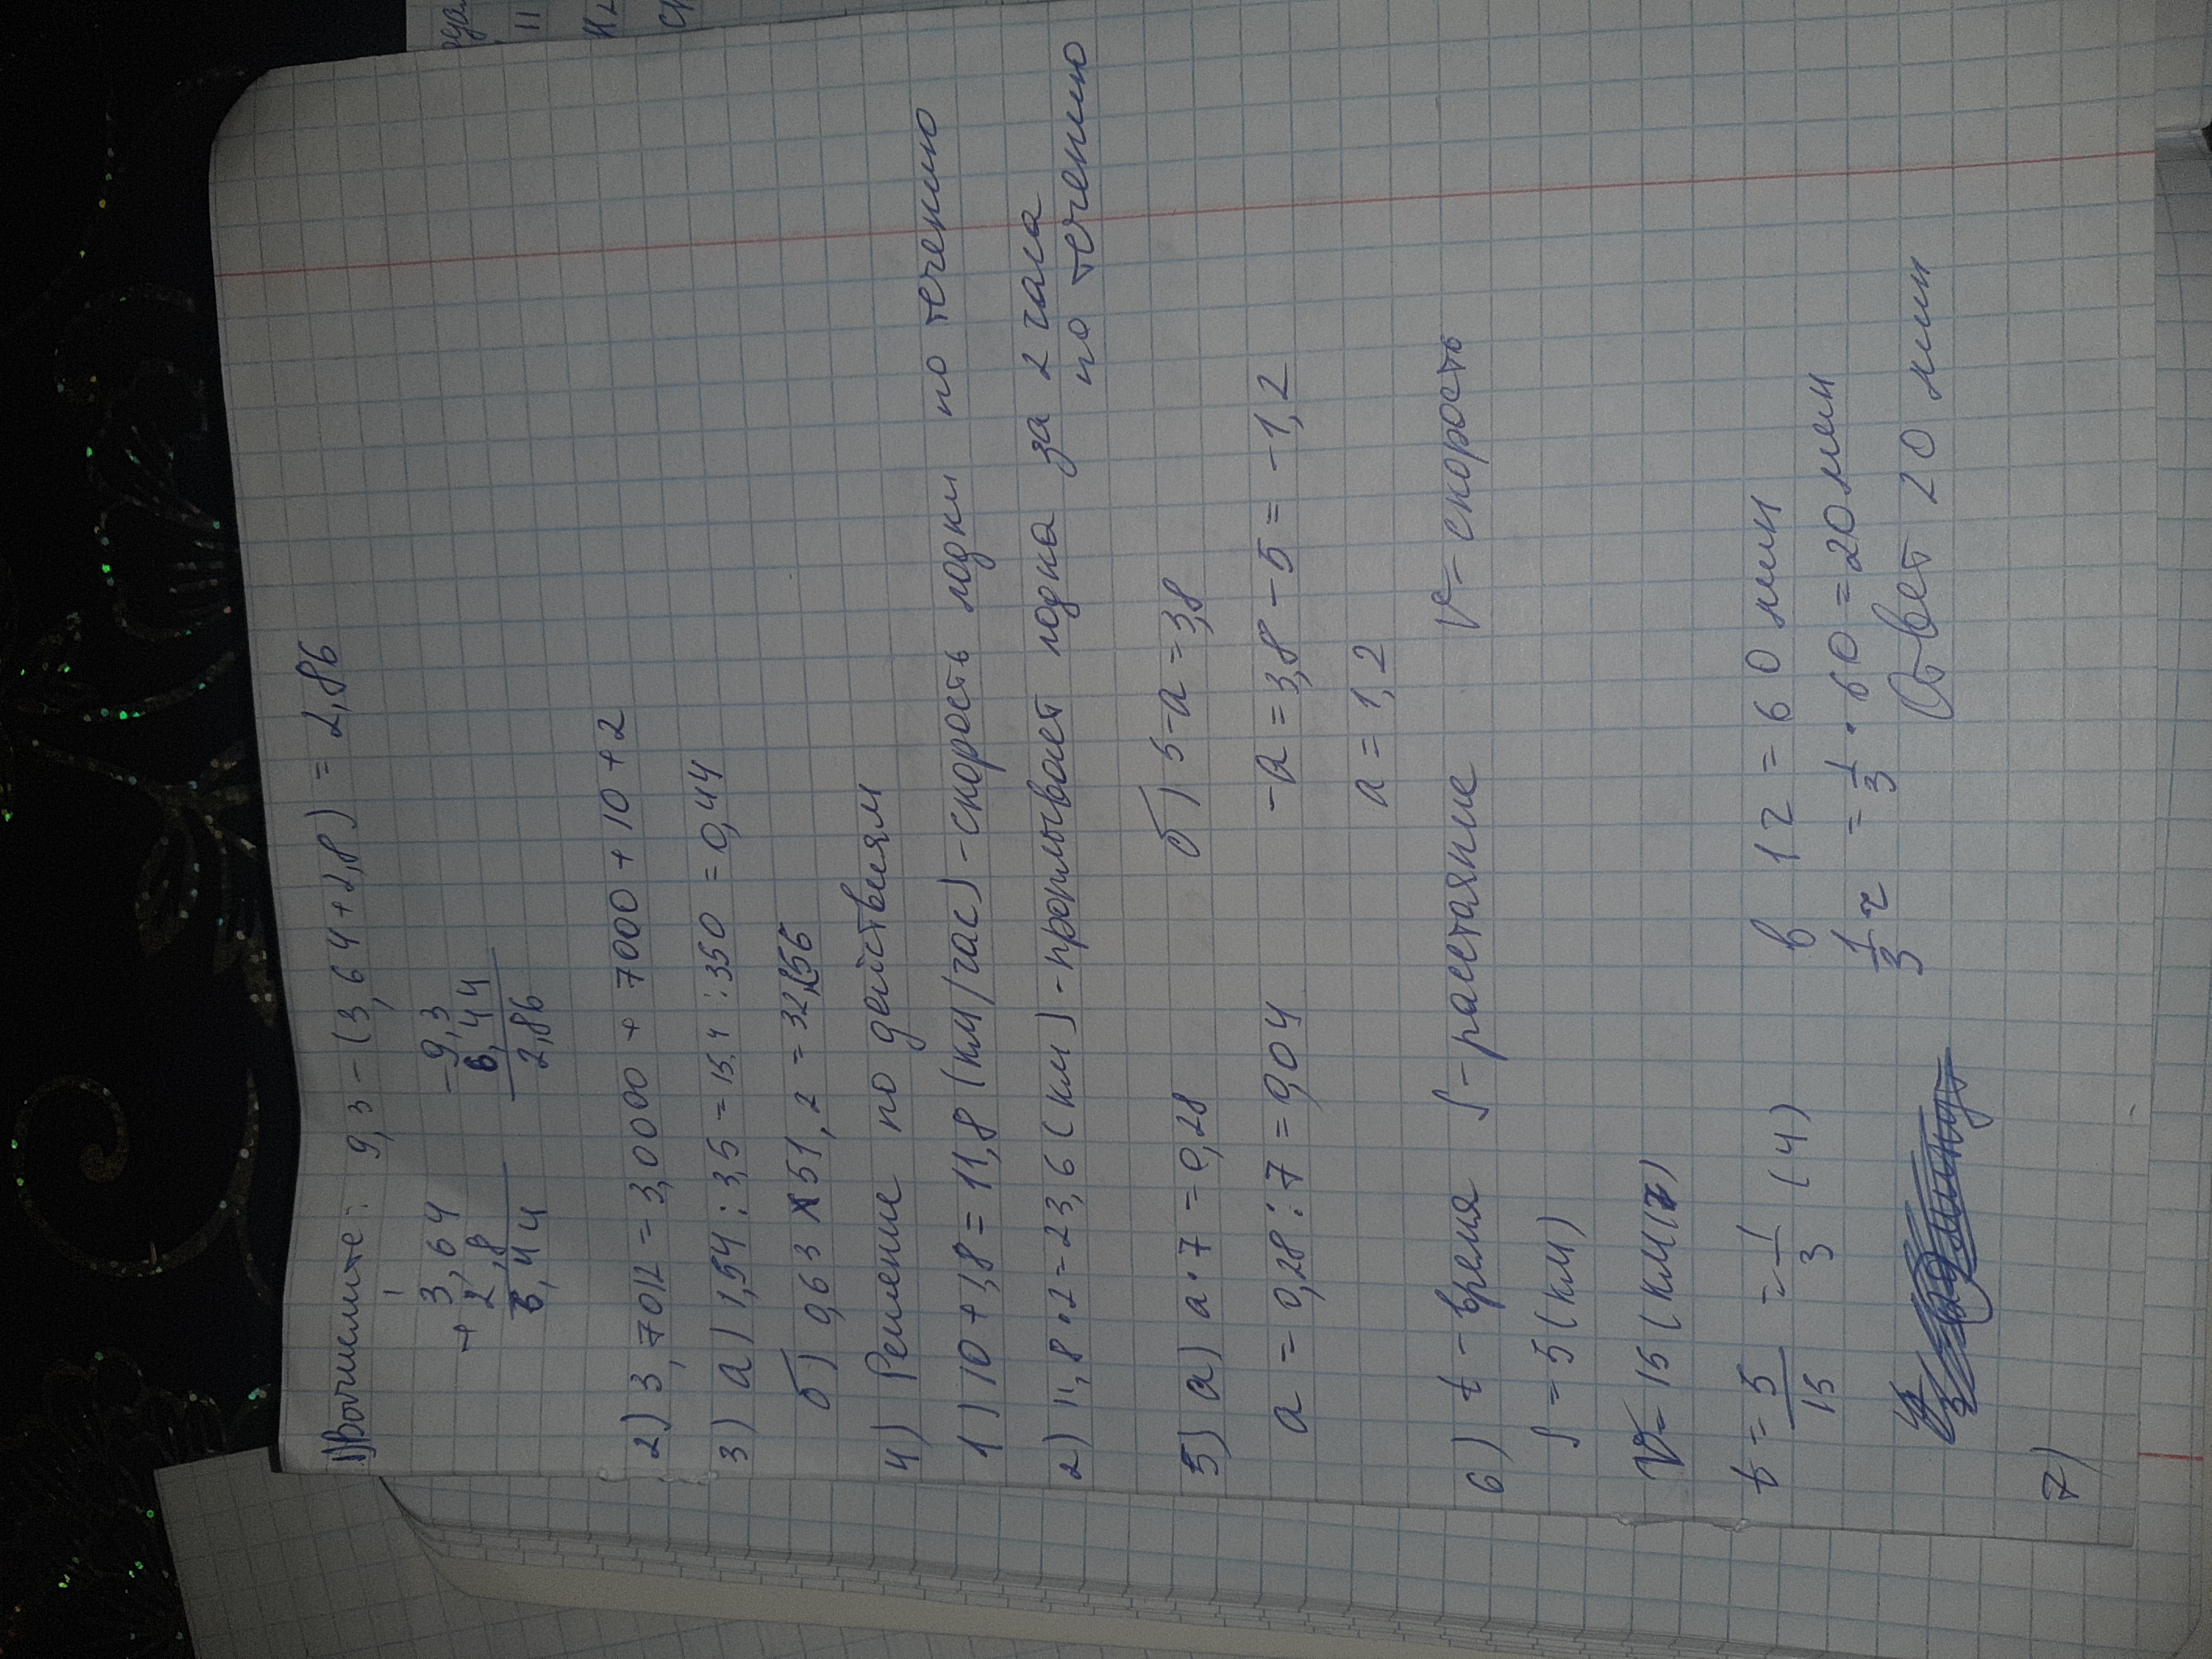 1) Вычислите: 9,3 - (3,64 + 2,8) = 2,86
+ 3,64 - 9,3
2,8 6,44
6,44 2,86
2) 3,7012 = 3,0000 + 7000 + 10 + 2
3) а) 1,54 : 3,5 = 15,4 : 350 = 0,44
б) 0,63 × 51,2 = 32,256
4) Решение по действиям
1) 10 + 1,8 = 11,8 (км/час) - скорость лодки по течению
2) 11,8 • 2 = 23,6 (км) - проплывает лодка за 2 часа
по течению
5) а) а • 7 = 0,28 б) 5 - а = 3,8
а = 0,28 : 7 = 0,04 -а = 3,8 - 5 = -1,2
а = 1,2
6) t - время S - расстаяние V - скорость
S = 5 (км)
V = 15 (км/ч)
t = 5/15 = 1/3 (ч) в 1 ч = 60 мин
1/3 ч = 1/3 • 60 = 20 мин
Ответ 20 мин
7)